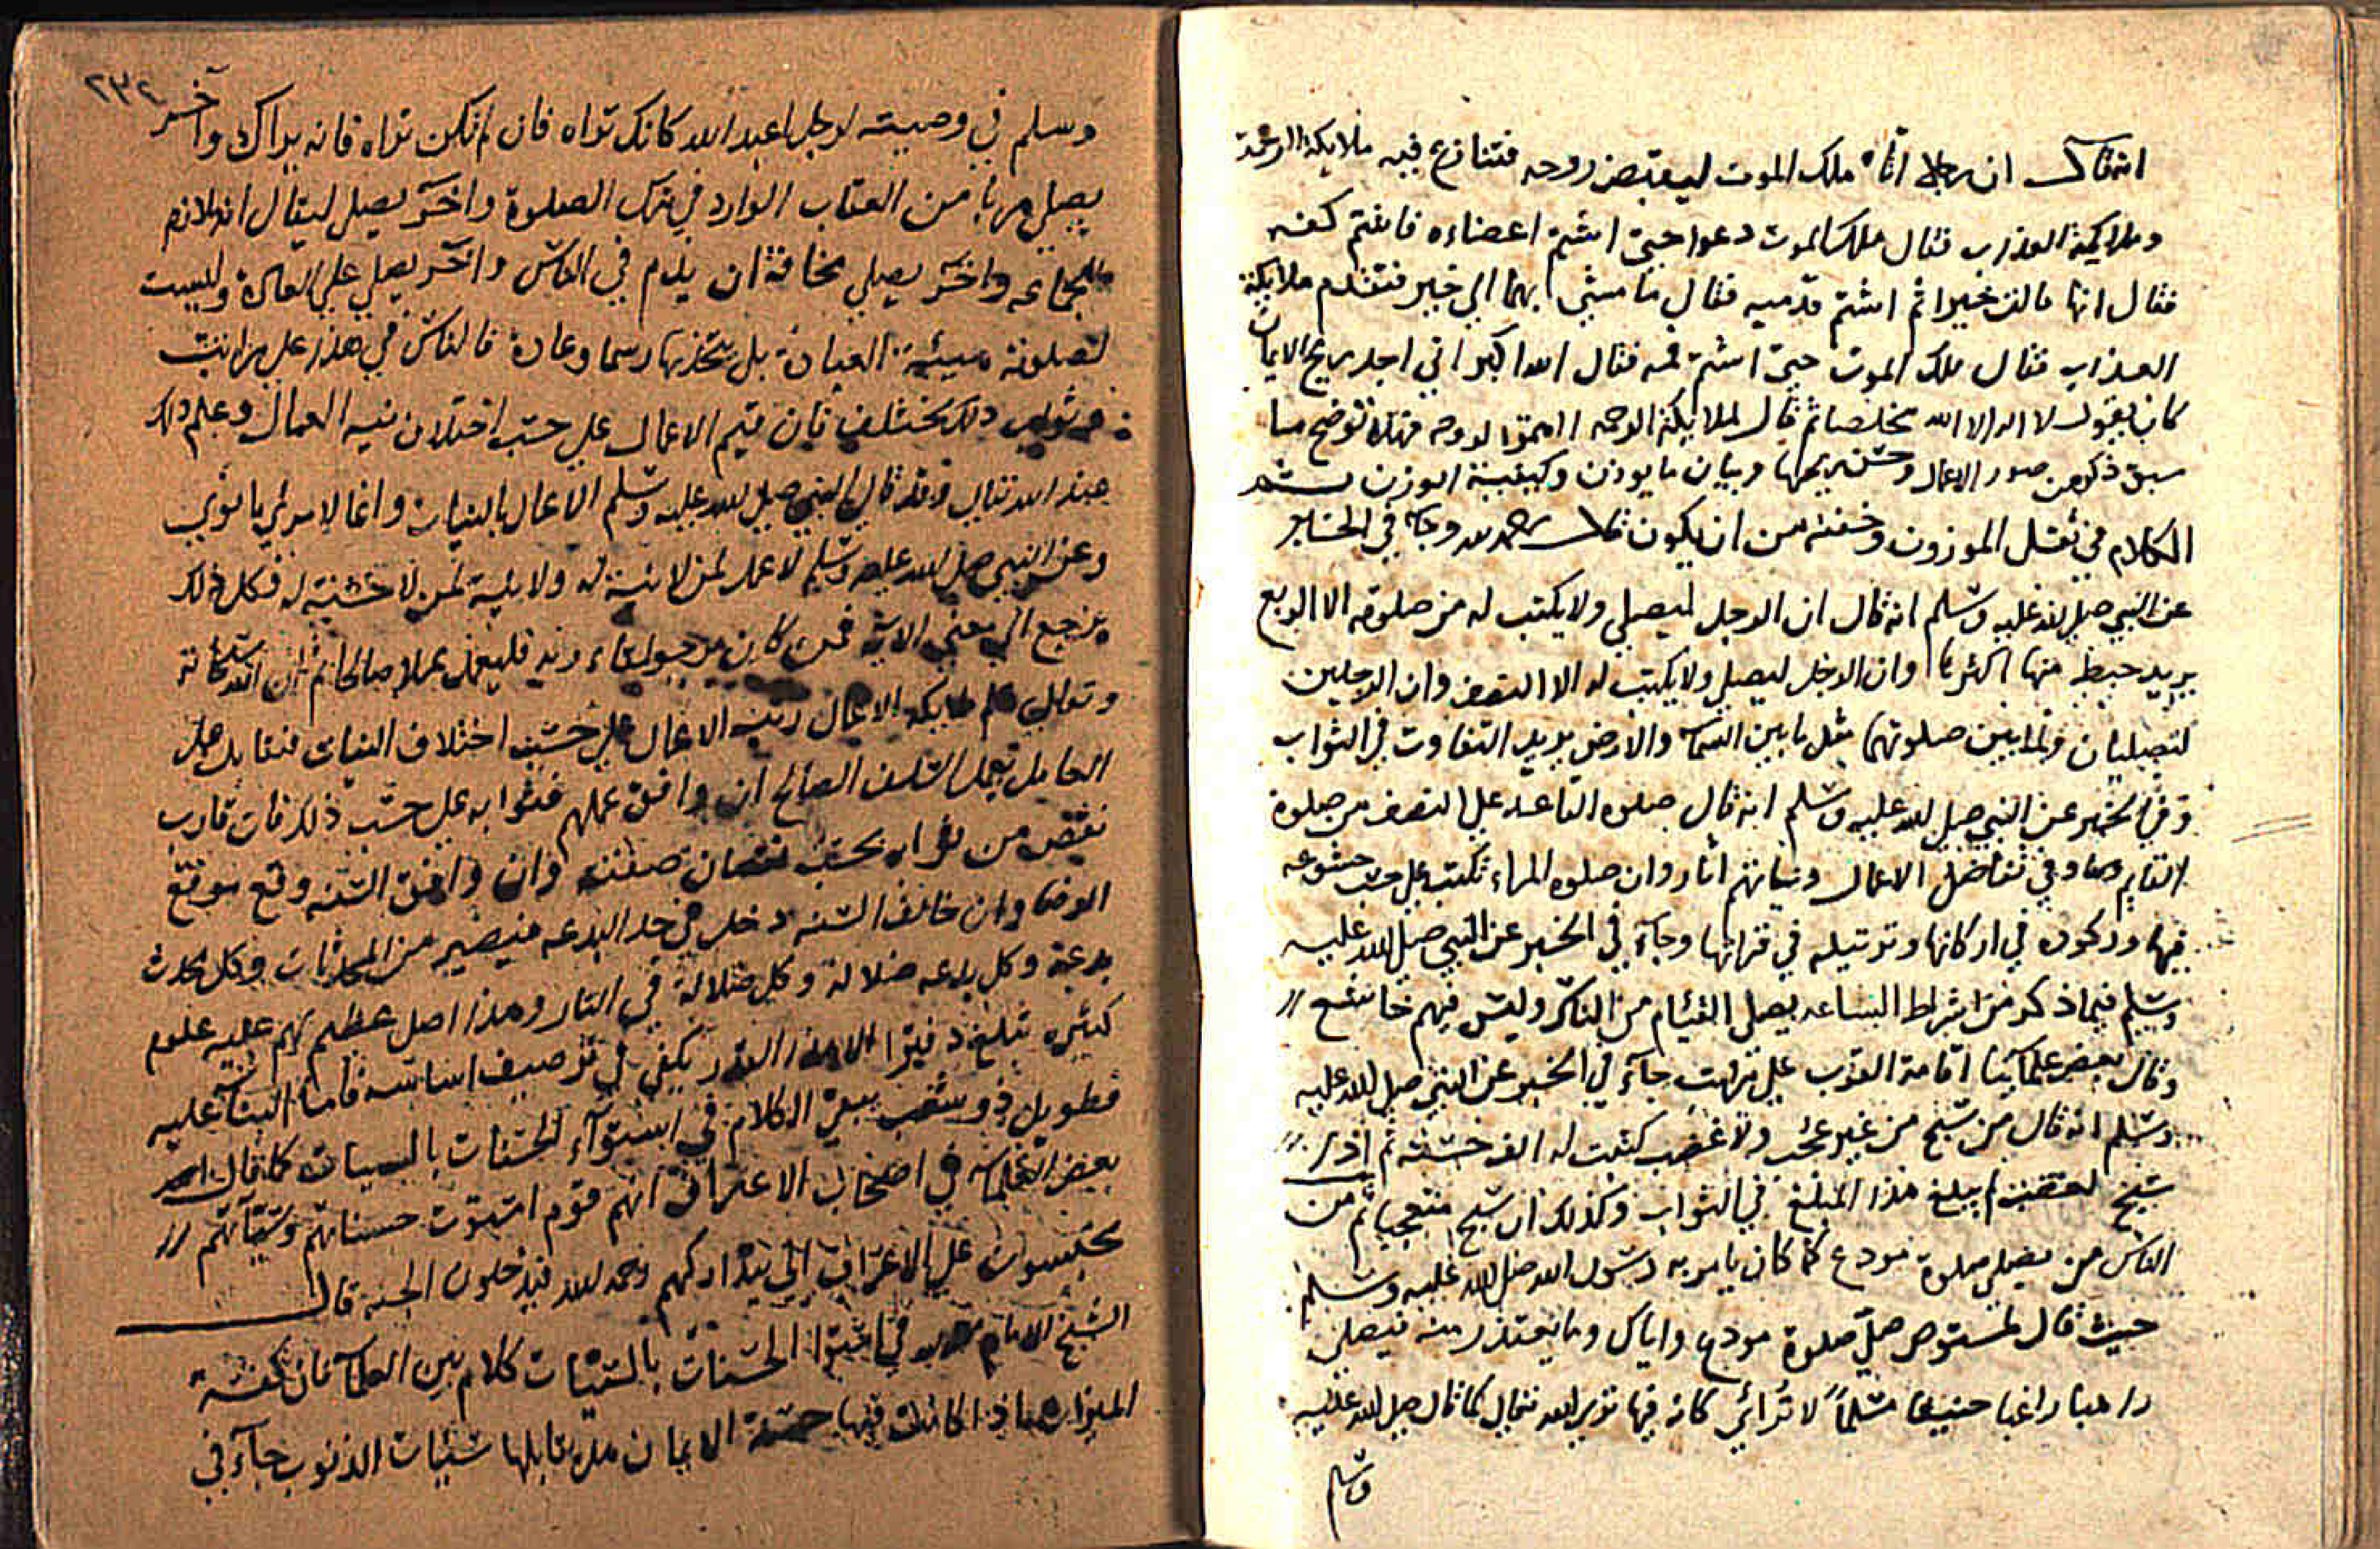 انه قال ان رجلا اتاه ملك الموت ليقبض روحه فتنازع فيه ملايكة الرحمة
وملايكة العذاب فقال ملك الموت دعوا حتي اشتم اعضاءه فاشتم كفه
فقال انها مالت خيرا ثم اشتم قدميه فقال ما مشي بهما الي خير فتقدم ملايكة
العذاب فقال ملك الموت حتي اشتم فمه فقال الله اكبر اني اجد ريح الايمان
كان يقول لا اله الا الله مخلصا ثم قال لملايكة الرحمه الحقوا لروحه فهذه توضح ما
سبق ذكره من صور الاعمال وبيان ما يوزن وكيفية الوزن
الكلام في ثقل الموزون وخفته من ان يكون وجاء في الخبر
عن النبي صلى الله عليه وسلم انه قال ان الرجل ليصلي ولا يكتب له من صلوته الا الربع
يريد حبط منها اكثرها وان الرجل ليصلي ولا يكتب له الا النصف وان الرجلين
ليصليان ولما بين صلوتهما مثل ما بين السماء والارض يريد التفاوت في الثواب
وفي الخبر عن النبي صلى الله عليه وسلم انه قال صلوه القاعد على النصف من صلوة
القايم وجاء في تفاضل الاعمال ونياتهم اثار وان صلوه المراء تكتب على حسب خشوعه
فيها وركوعه في اركانها وترتيله في قراتها وجاء في الخبر عن النبي صلى الله عليه
وسلم فيما ذكر من اشراط الساعه يصلي الفيام من الناس وليس فيهم خاشع
وقال بعض علمآينا اقامة الثوب على مراتب جآء في الخبر عن النبي صلى الله عليه
وسلم انه قال من سبح من غير عجب ولا غضب كتبت له الف حسنة ثم اذا
سبح لغضب لم يبلغ هذا المبلغ في الثواب وكذلك ان سبح متعجبا ثم من
الناس من يصلي صلوة مودع كما كان يامر به رسول الله صلى الله عليه وسلم
حيث قال لمستوص صل صلوة مودع واياك وما يعتذر منه فيصلي
راهبا راغبا حنيفا مسلما لا يرائي كانه فيها يرى الله تعالى كما قال صلى الله عليه
وسلم
٢٣٢
وسلم في وصيته لرجل اعبد الله كانك تراه فان لم تكن تراه فانه يراك وآخر
يصلي هربا من العقاب الوارد في ترك الصلوة وآخر يصلي ليقال انه لازم
للجماعه وآخر يصلي مخافة ان يذم في الناس وآخر يصلي على العادة وليست
لصلوته هيئة العبادة بل يتخذها رسما وعادة فالناس في هذا على مراتب
وثواب ذلك مختلف فان قيم الاعمال على حسب اختلاف نيه العمال وعلم ذلك
عند الله تعالى وقد قال النبي صلى الله عليه وسلم الاعمال بالنيات وانما لامرئ ما نوى
وعن النبي صلى الله عليه وسلم لا عمل لمن لا نية له ولا نية لمن لا خشية له فكل ذلك
يرجع الي معني الآية فمن كان يرجو لقاء ربه فليعمل عملا صالحا ثم ان الله سبحانه
وتعالى علم ملايكة الاعمال رتب الاعمال على حسب اختلاف النيات فتقابل عمل
العامل بعمل السلف الصالح ان وافق عملهم فثوابه على حسب ذلك فان قارب
نقص من ثوابه بحسب نقصان صفته وان وافق السنه وقع موقع
الرضا وان خالف السنه دخل في حد البدعه فيصير من المحدثات وكل محدث
بدعة وكل بدعه ضلالة وكل ضلالة في النار وهذا اصل عظيم لهم عليه علوم
كثيره تبلغ دفترا الا هذا القدر يكفي في ترصيف اساسه فاما البناء عليه
فطويل ذو شعب يبقى الكلام في استوآء الحسنات بالسيات كما قال
بعض العلماء في اصحاب الاعراف انهم قوم استوت حسناتهم وسيآتهم
يحبسون على الاعراف الى يتداركهم رحمه الله فيدخلون الجنه قال
الشيخ الامام في اعتبار الحسنات بالسيئات كلام بين العلماء فان كفة
الميزان اذا كانت فيها حسنة الايمان هل يقابلها سيئات الذنوب جآء في